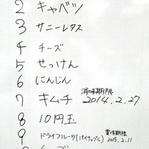 2 キャベツ
3 サニーレタス
4 チーズ
5 せっけん
6 にんじん
7 キムチ 消味期限 2014.2.27
8 10円玉
9 ドライフルーツ(パイナップル) 賞味期限 2015.2.11